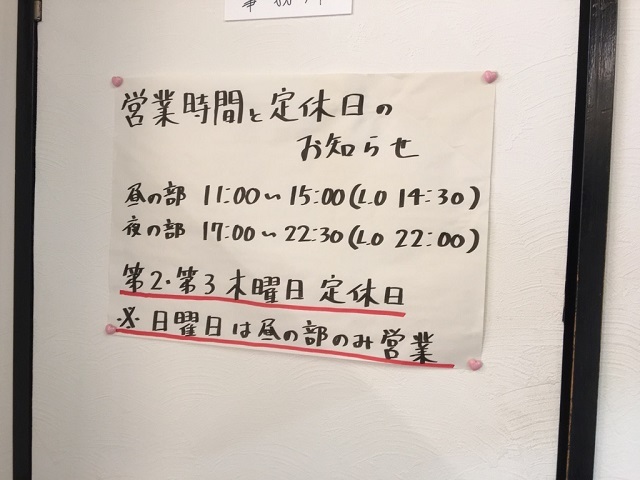 事務所
営業時間と定休日の
お知らせ
昼の部 11:00〜15:00(L.O 14:30)
夜の部 17:00〜22:30(L.O 22:00)
第2・第3木曜日 定休日
※日曜日は昼の部のみ営業